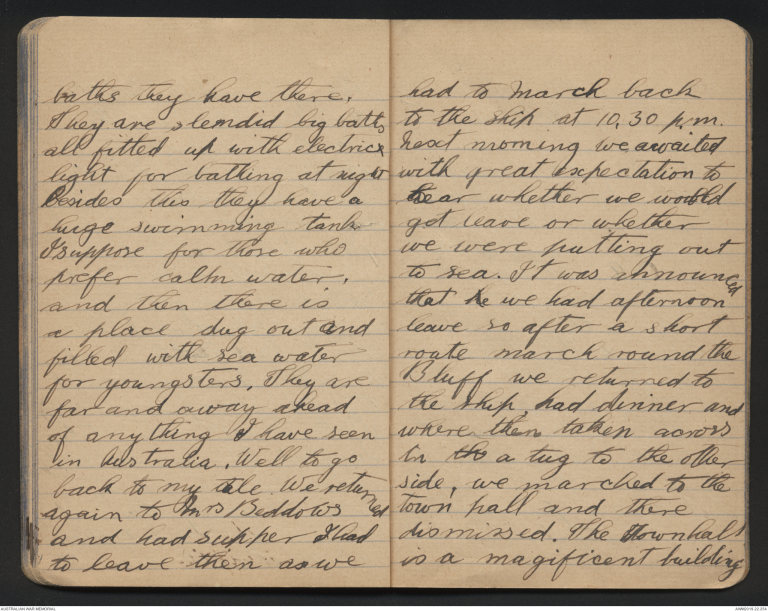 baths they have there.
They are slendid big baths
all fitted up with electrice
light for bathing at night
Besides this they have a
huge swimming tank
I suppose for those who
prefer calm water.
and then there is
a place dug out and
filled with sea water
for youngsters. They are
far and away ahead
of anything I have seen
in Australia. Well to go
back to my tale. We returned
again to Mrs Beddows
and had supper I had
to leave then as we
had to march back
to the ship at 10.30 p.m.
Next morning we awaited
with great expectation to
hear whether we would
get leave or whether
we were putting out
to sea. It was announced
that he we had afternoon
leave so after a short
route march round the
Bluff we returned to
the ship, had dinner and
where then taken across
in th a tug to the other
side, we marched to the
town hall and there
dismissed. The townhall
is a magificent building
AUSTRALIAN WAR MEMORIAL